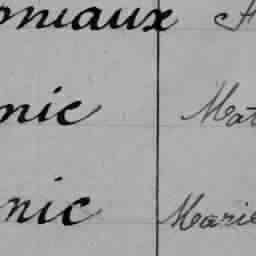 oniaux
nic Mat
nic Marie